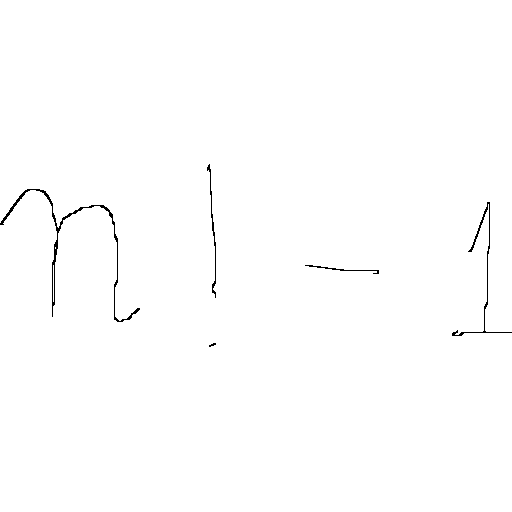 n! - 1